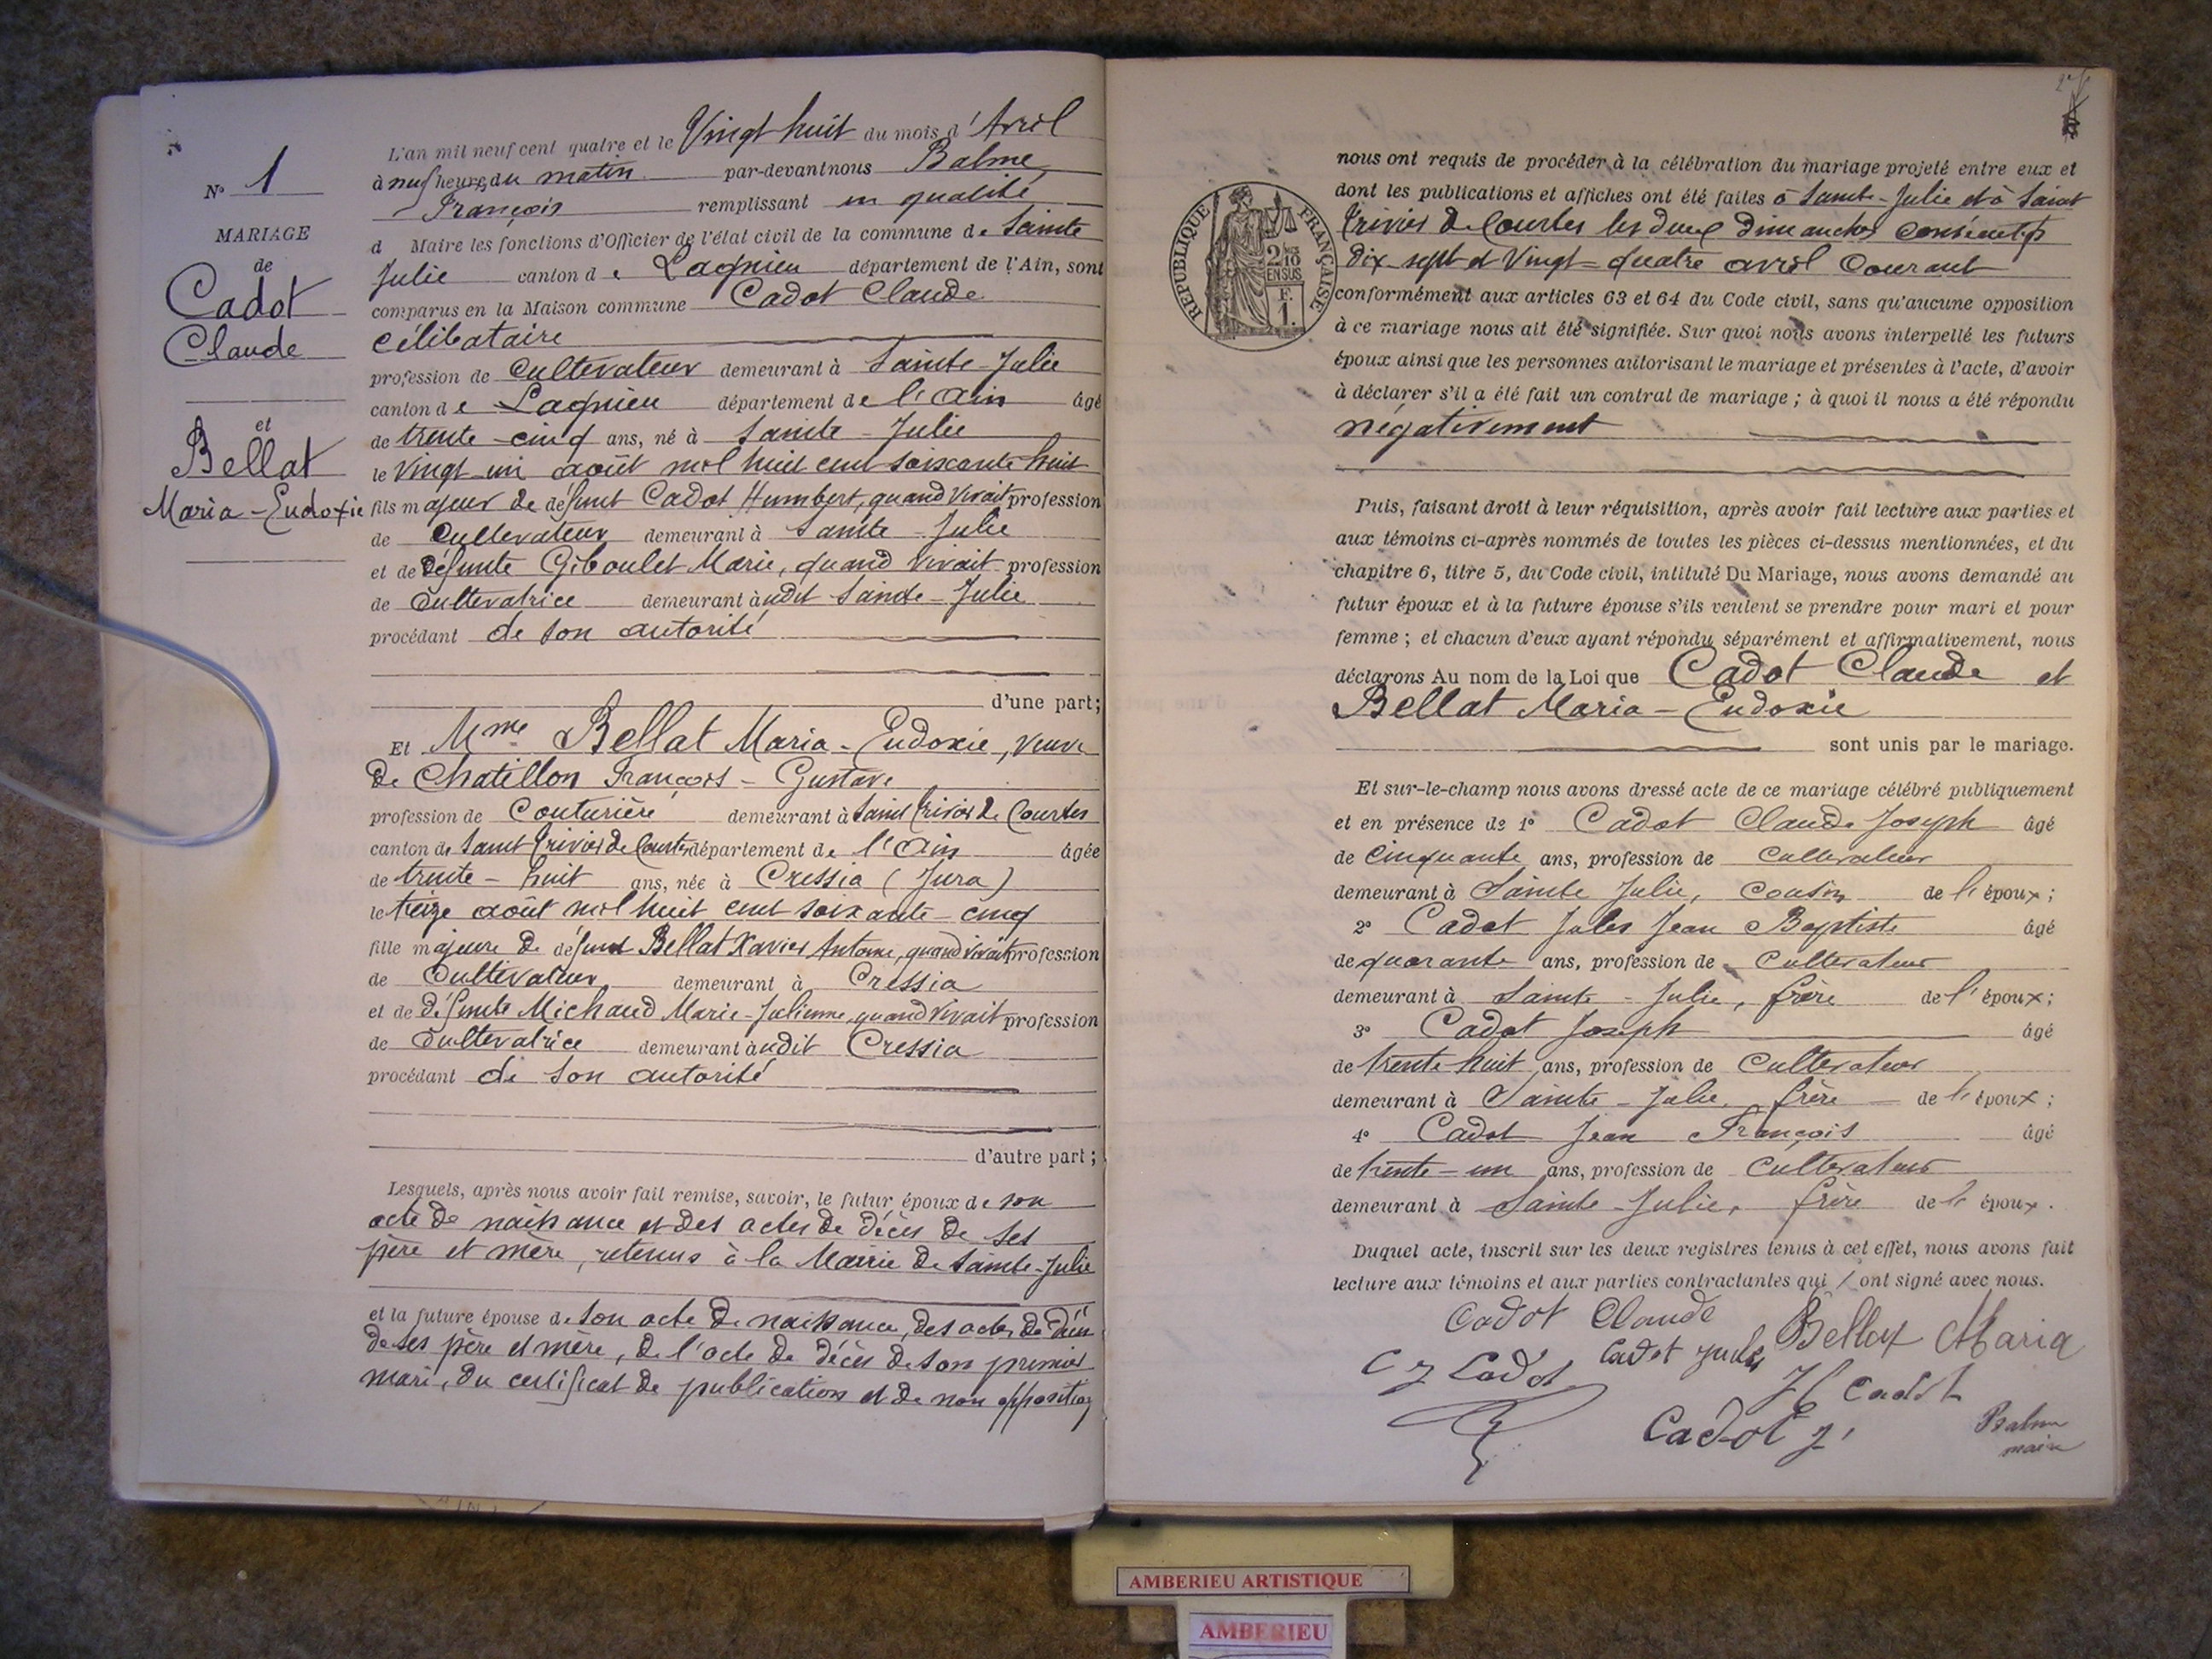 N° 1
MARIAGE
de
Cadot
Claude
et
Bellat
Maria-Eudoxie
L'an mil neuf cent quatre et le Vingt huit du mois d'Avril
à neuf heures du matin par-devant nous Balme
François remplissant en qualité
d Maire les fonctions d'Officier de l'état civil de la commune de Sainte
Julie canton de Lagnieu département de l'Ain, sont
comparus en la Maison commune Cadot Claude
célibataire
profession de Cultivateur demeurant à Sainte-Julie
canton de Lagnieu département de l'Ain âgé
de trente-cinq ans, né à Sainte-Julie
le vingt un août mil huit cent soixante huit
fils majeur de défunt Cadot Humbert, quand vivait profession
de Cultivateur demeurant à Sainte Julie
et de Défunte Giboulet Marie, quand vivait profession
de Cultivatrice demeurant àudit Sainte-Julie
procédant de son autorité
d'une part;
Et Mme Bellat Maria-Eudoxie, veuve
de Chatillon François-Gustave
profession de Couturière demeurant à Saint Trivier de Courtes
canton de Saint Trivier de Courtes département de l'Ain âgée
de trente-huit ans, née à Cressia (Jura)
le treize août mil huit cent soixante-cinq
fille majeure de défunt Bellat Xavier Antoine, quand vivait profession
de Cultivateur demeurant à Cressia
et de Défunte Michaud Marie-Julienne, quand vivait profession
de Cultivatrice demeurant àudit Cressia
procédant de son autorité
d'autre part;
Lesquels, après nous avoir fait remise, savoir, le futur époux de son
acte de naissance et des actes de décès de ses
père et mère, retenus à la Mairie de Sainte-Julie
et la future épouse de son acte de naissance, des actes de décès
de ses père et mère, de l'acte de décès de son premier
mari, du certificat de publication et de non opposition
nous ont requis de procéder à la célébration du mariage projeté entre eux et
dont les publications et affiches ont été faites à Sainte-Julie et à Saint
Trivier de Courtes les deux dimanches consécutifs
dix-sept et Vingt-quatre avril Courant
conformément aux articles 63 et 64 du Code civil, sans qu'aucune opposition
à ce mariage nous ait été signifiée. Sur quoi nous avons interpellé les futurs
époux ainsi que les personnes autorisant le mariage et présentes à l'acte, d'avoir
à déclarer s'il a été fait un contrat de mariage ; à quoi il nous a été répondu
négativement
RÉPUBLIQUE FRANÇAISE
2/10
EN SUS
F.
1.
Puis, faisant droit à leur réquisition, après avoir fait lecture aux parties et
aux témoins ci-après nommés de toutes les pièces ci-dessus mentionnées, et du
chapitre 6, titre 5, du Code civil, intitulé Du Mariage, nous avons demandé au
futur époux et à la future épouse s'ils veulent se prendre pour mari et pour
femme ; et chacun d'eux ayant répondu séparément et affirmativement, nous
déclarons Au nom de la Loi que Cadot Claude et
Bellat Maria-Eudoxie
sont unis par le mariage.
Et sur-le-champ nous avons dressé acte de ce mariage célébré publiquement
et en présence de 1° Cadot Claude Joseph âgé
de cinquante ans, profession de cultivateur
demeurant à Sainte Julie, cousin de l'époux ;
2° Cadot Jules Jean Baptiste âgé
de quarante ans, profession de Cultivateur
demeurant à Sainte-Julie, frère de l'époux ;
3° Cadot Joseph âgé
de trente-huit ans, profession de Cultivateur
demeurant à Sainte-Julie, frère de l'époux ;
4° Cadot Jean François âgé
de trente-un ans, profession de Cultivateur
demeurant à Sainte-Julie, frère de l'époux.
Duquel acte, inscrit sur les deux registres tenus à cet effet, nous avons fait
lecture aux témoins et aux parties contractantes qui ont signé avec nous.
Cadot Claude
Bellat Maria
C J Cadot
Cadot Jules
Jf Cadot
Cadot J
Balme
maire
AMBERIEU ARTISTIQUE
AMBERIEU